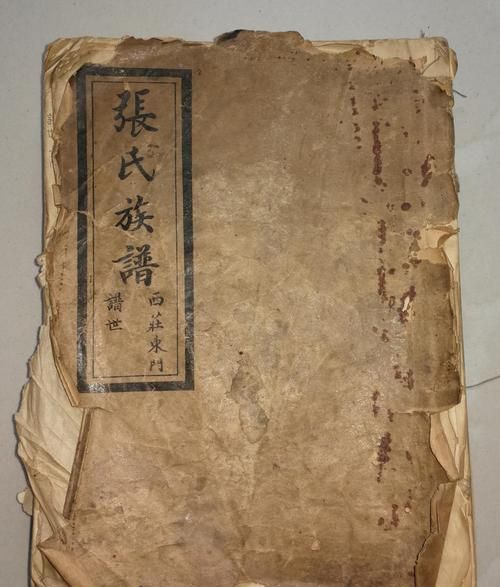 張氏族譜
西莊東門
譜世